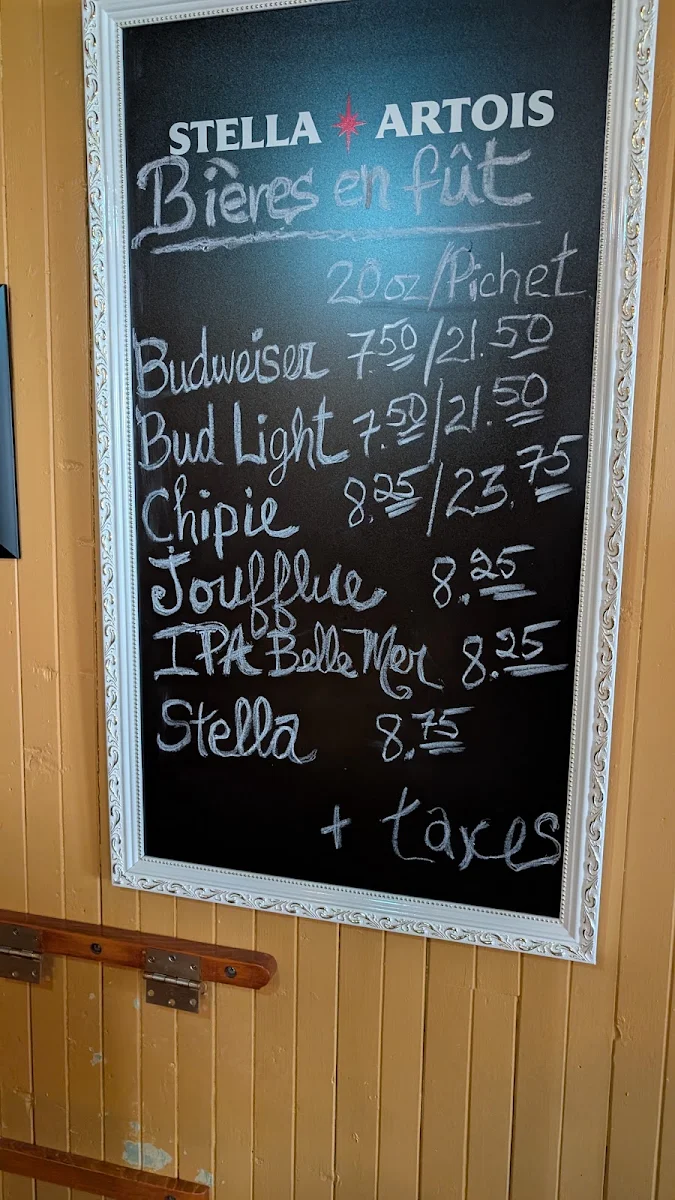 STELLA ARTOIS
Bières en fût
20oz/Pichet
Budweiser 7.50/21.50
Bud Light 7.50/21.50
Chipie 8.25/23.75
Joufflue 8.25
IPA Belle Mer 8.25
Stella 8.75
+ taxes